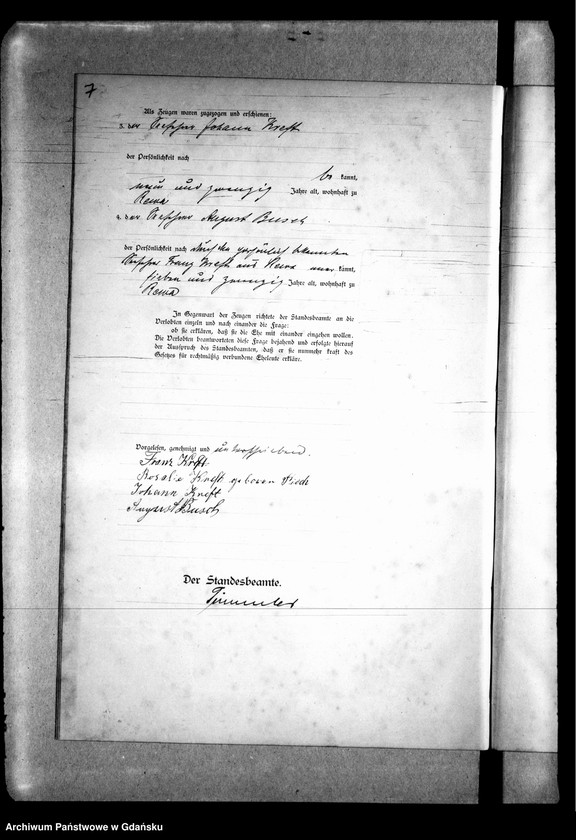 7
Als Zeugen waren zugezogen und erschienen:
1. der Seefahrer Johann Kreft
der Persönlichkeit nach
be kannt,
neun und zwanzig Jahre alt, wohnhaft zu
Rewa
2. der August Busch
der Persönlichkeit nach durch den persönlich bekannten
Franz Kreft aus Rewa aner kannt,
sieben und zwanzig Jahre alt, wohnhaft zu
Rewa
In Gegenwart der Zeugen richtete der Standesbeamte an die
Verlobten einzeln und nach einander die Frage:
ob sie erklären, daß sie die Ehe mit einander eingehen wollen.
Die Verlobten beantworteten diese Frage bejahend und erfolgte hierauf
der Ausspruch des Standesbeamten, daß er sie nunmehr kraft des
Gesetzes für rechtmäßig verbundene Eheleute erkläre.
Vorgelesen, genehmigt und unterschrieben.
Franz Kreft
Rosalie Kreft geboren
Johann Kreft
August Busch
Der Standesbeamte.
Archiwum Państwowe w Gdańsku